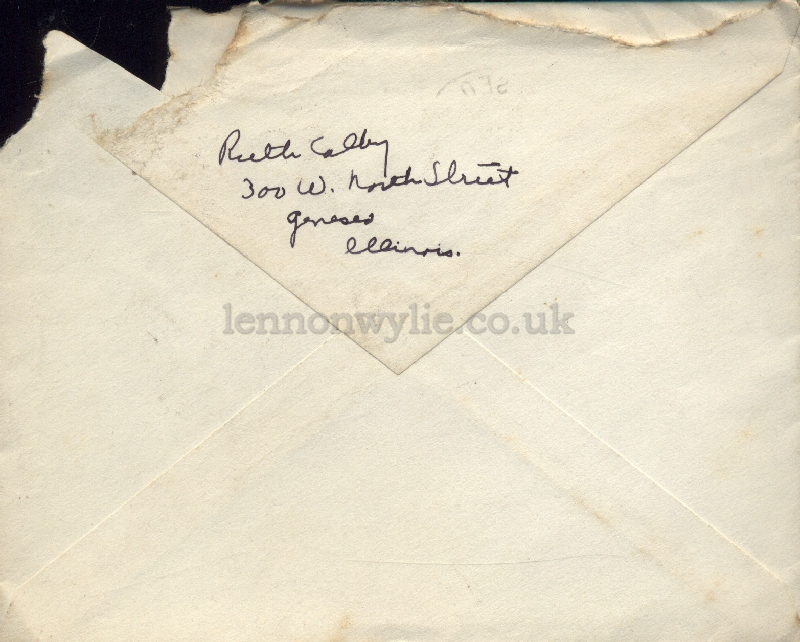 Ruth Colby
300 W. North Street
Geneseo
Illinois.
lennonwylie.co.uk